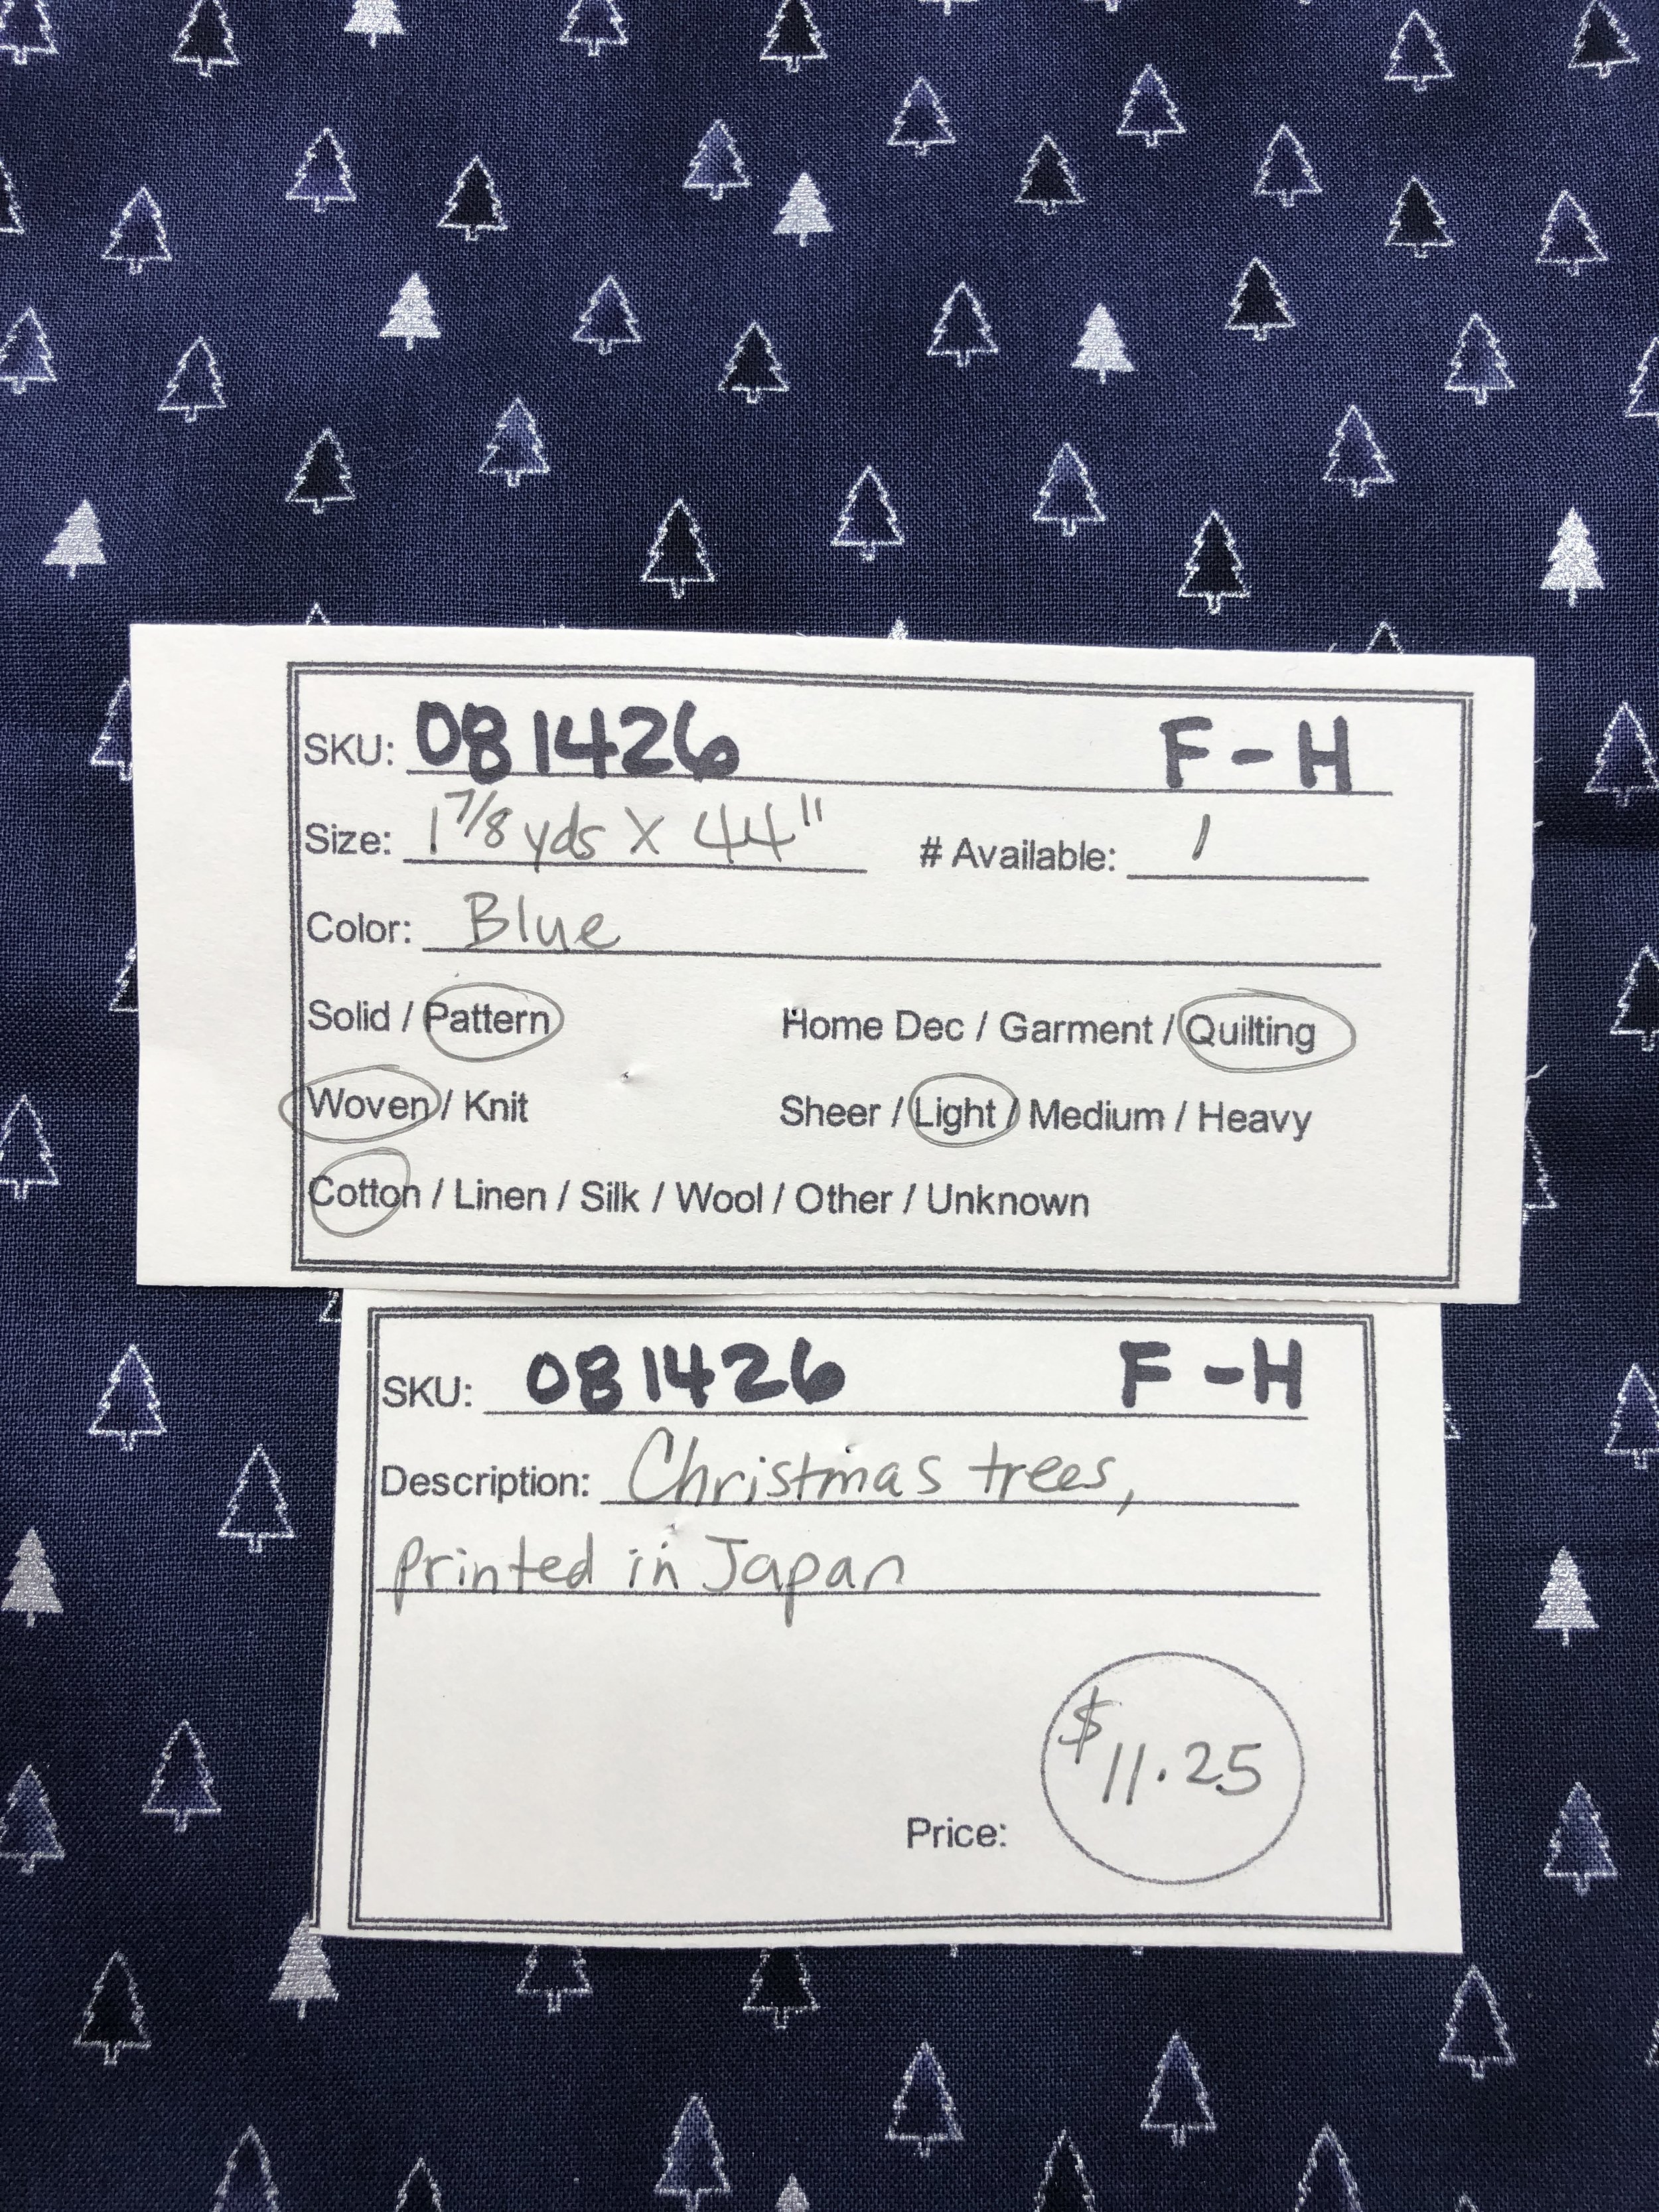 SKU: 081426 F-H
Size: 1 7/8 yds X 44" # Available: 1
Color: Blue
Solid / Pattern Home Dec / Garment / Quilting
Woven / Knit Sheer / Light / Medium / Heavy
Cotton / Linen / Silk / Wool / Other / Unknown
SKU: 081426 F-H
Description: Christmas trees,
printed in Japan
Price: $11.25